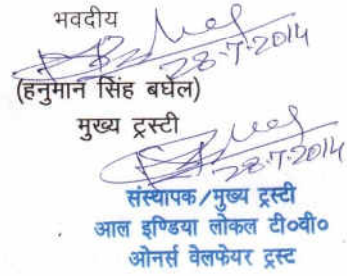 भवदीय
28-7-2014
(हनुमान सिंह बघेल)
मुख्य ट्रस्टी
28-7-2014
संस्थापक/मुख्य ट्रस्टी
आल इण्डिया लोकल टी०वी०
ओनर्स वेलफेयर ट्रस्ट